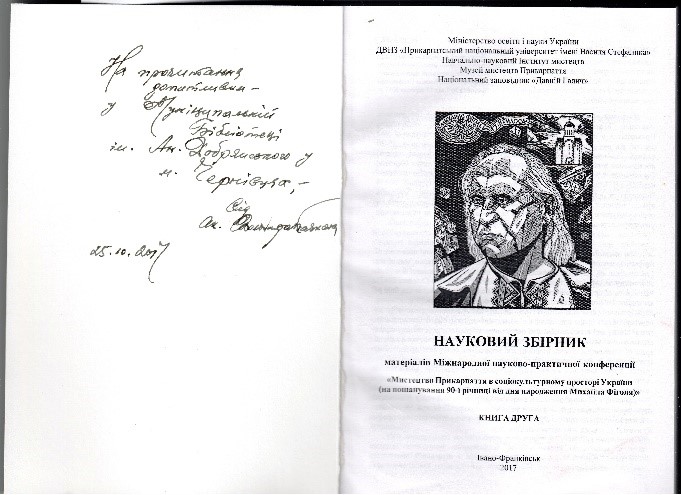 На прочитання
допитливим –
у Муніципальній
Бібліотеці
ім. Ан. Добрянського у
м. Чернівцях, –
Від
Ак.
25.10.2017
Міністерство освіти і науки України
ДВНЗ «Прикарпатський національний університет імені Василя Стефаника»
Навчально-науковий інститут мистецтв
Музей мистецтв Прикарпаття
Національний заповідник «Давній Галич»
НАУКОВИЙ ЗБІРНИК
матеріалів Міжнародної науково-практичної конференції
«Мистецтво Прикарпаття в соціокультурному просторі України
(на пошанування 90-ї річниці від дня народження Михайла Фіголя)»
КНИГА ДРУГА
Івано-Франківськ
2017